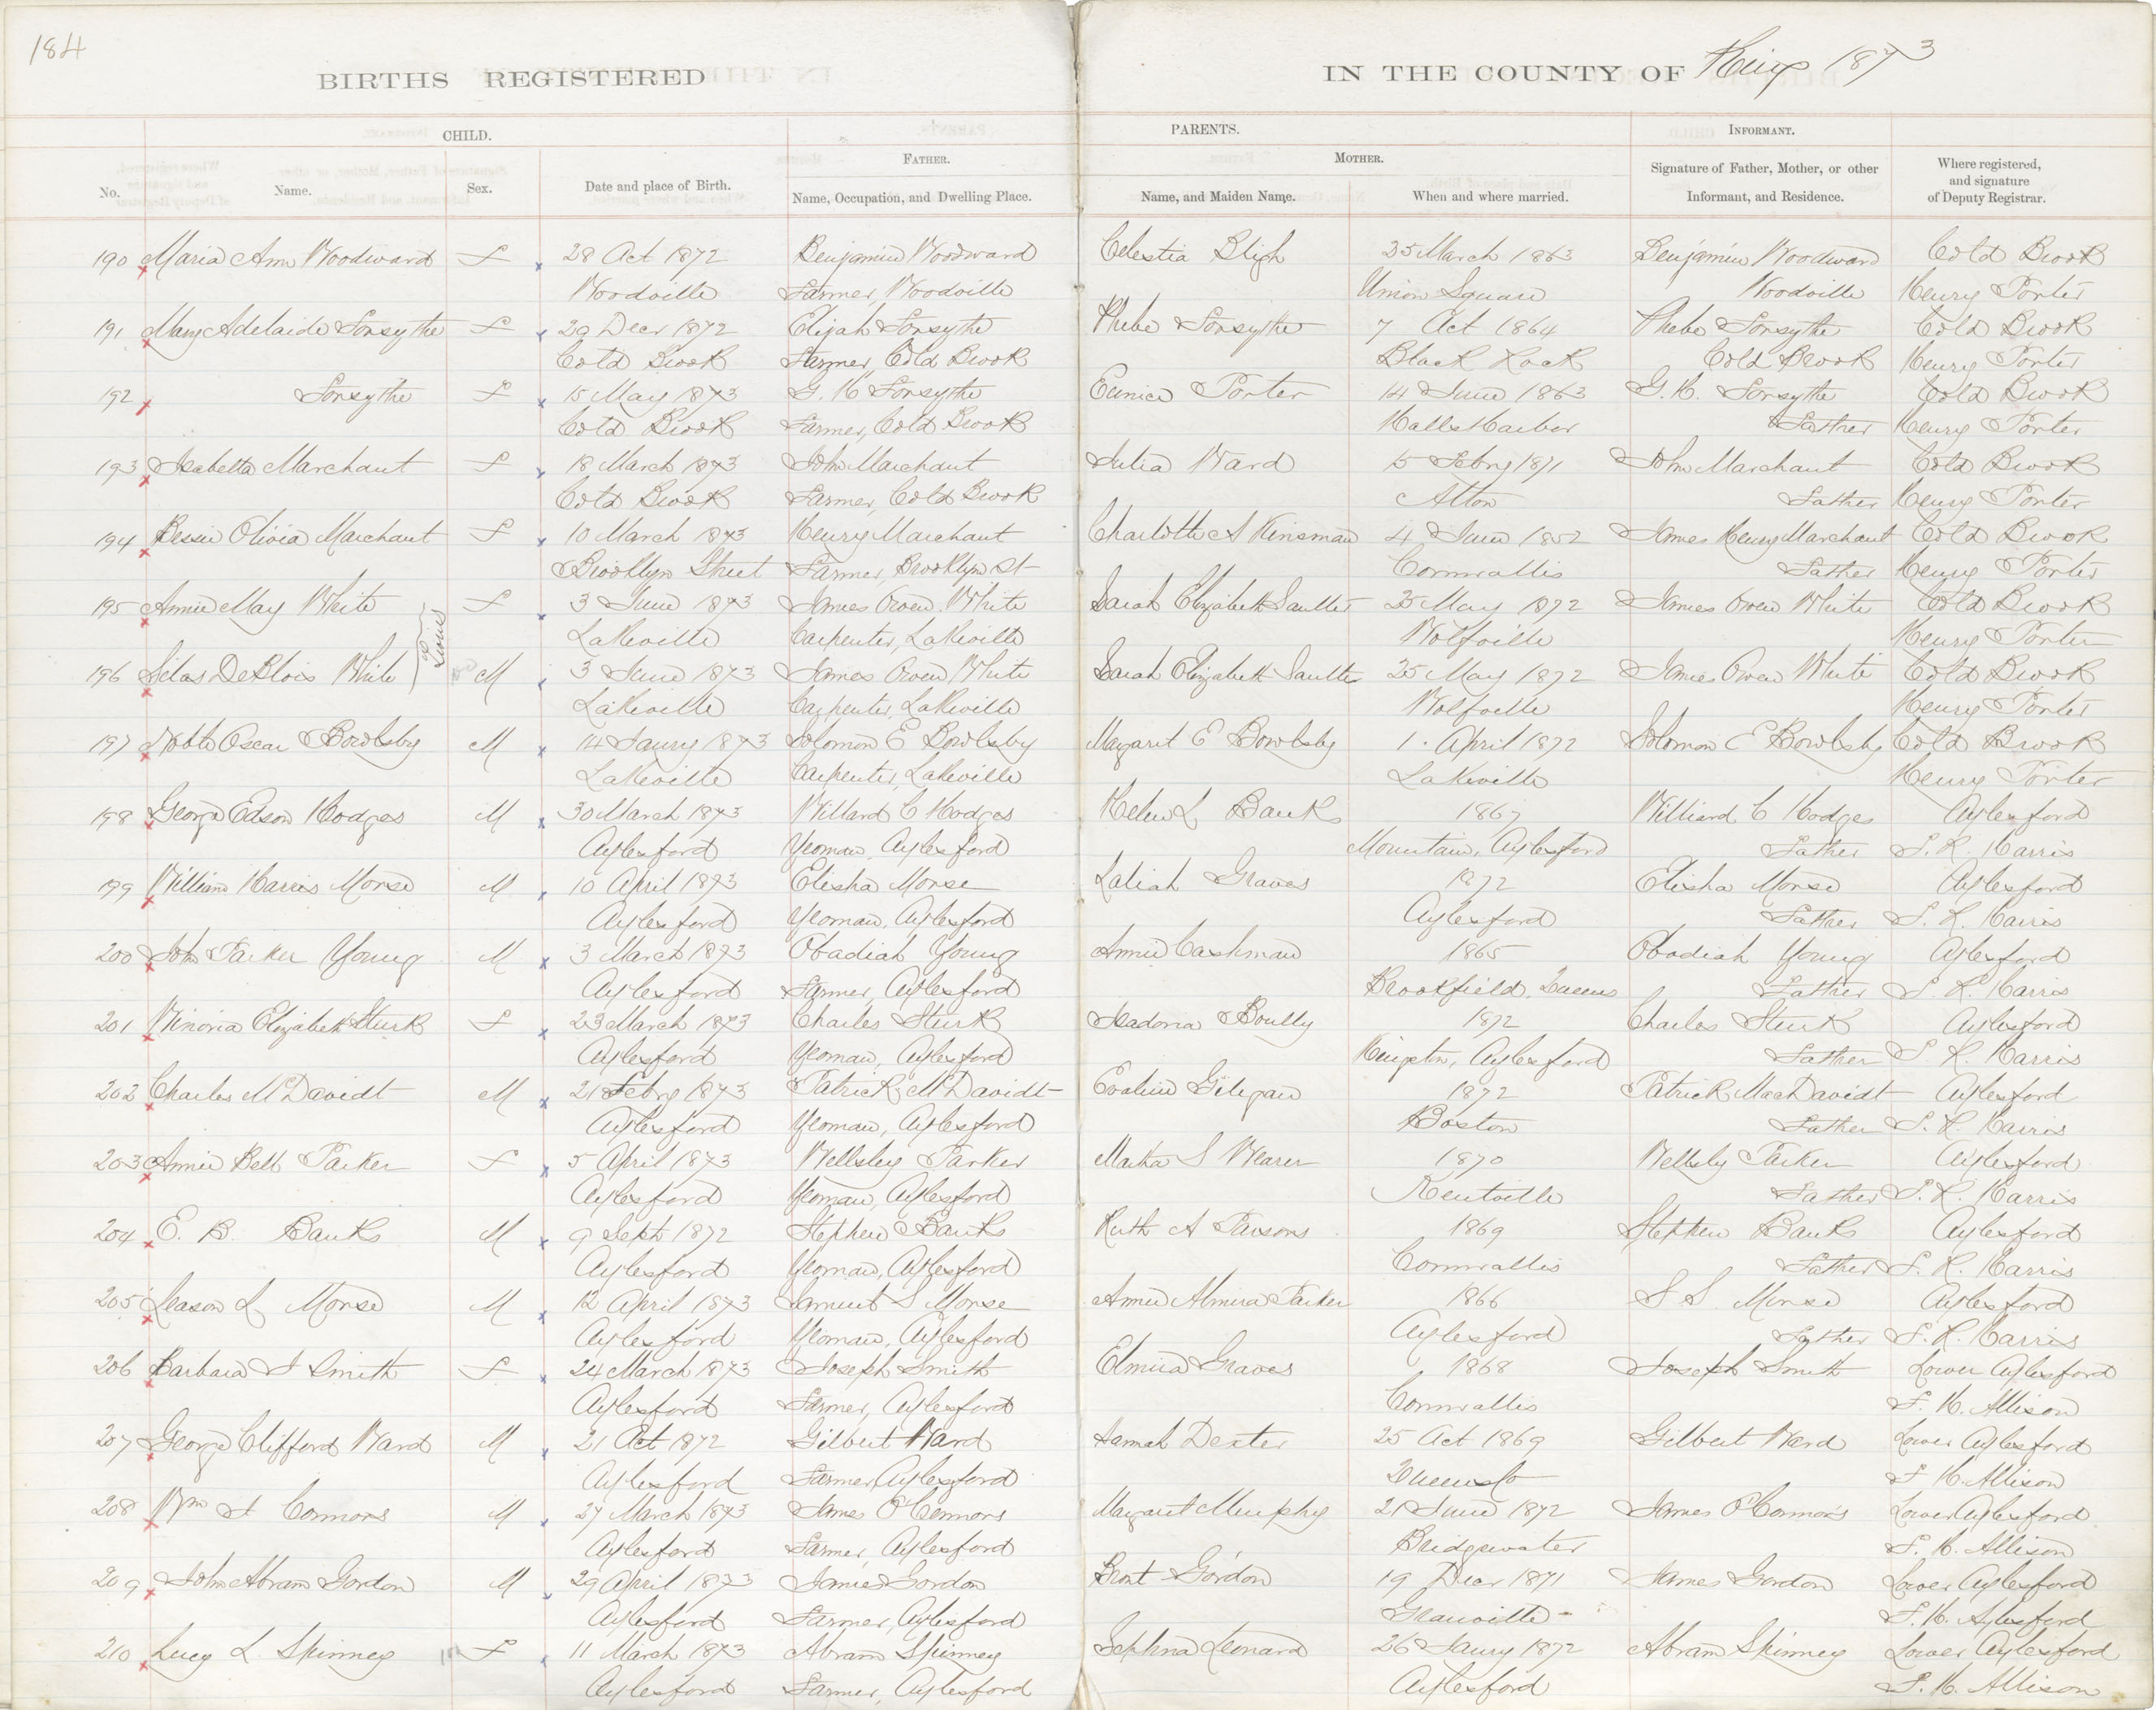 184
BIRTHS REGISTERED IN THE COUNTY OF Kings 1873
CHILD. PARENTS. INFORMANT.
FATHER. MOTHER.
No. Name. Sex. Date and place of Birth. Name, Occupation, and Dwelling Place. Name, and Maiden Name. When and where married. Signature of Father, Mother, or other Informant, and Residence. Where registered, and signature of Deputy Registrar.
190 Maria Ann Woodward F 28 Oct 1872 Benjamin Woodward Celestia Bligh 25 March 1863 Benjamin Woodward Cold Brook
Woodville Farmer, Woodville Union Square Woodville Henry Porter
191 Mary Adelaide Forsythe F 29 Decr 1872 Elijah Forsythe Phebe Forsythe 7 Oct 1864 Phebe Forsythe Cold Brook
Cold Brook Farmer, Cold Brook Black Rock Cold Brook Henry Porter
192 Forsythe F 15 May 1873 G. H Forsythe Eunice Porter 14 June 1863 G. H. Forsythe Cold Brook
Cold Brook Farmer, Cold Brook Halls Harbor Father Henry Porter
193 Isabella Marchant F 18 March 1873 John Marchant Julia Ward 15 Febry 1871 John Marchant Cold Brook
Cold Brook Farmer, Cold Brook Alton Father Henry Porter
194 Bessie Olivia Marchant F 10 March 1873 Henry Marchant Charlotte A Kinsman 4 June 1852 James Henry Marchant Cold Brook
Brooklyn Street Farmer, Brooklyn St Cornwallis Father Henry Porter
195 Annie May White F 3 June 1873 James Owen White Sarah Elizabeth Saulter 25 May 1872 James Owen White Cold Brook
Twins
Lakeville Carpenter, Lakeville Wolfville Henry Porter
196 Silas DeBlois White M 3 June 1873 James Owen White Sarah Elizabeth Saulter 25 May 1872 James Owen White Cold Brook
Lakeville Carpenter, Lakeville Wolfville Henry Porter
197 Noble Oscar Bowlsby M 14 Janry 1873 Solomon E Bowlsby Margaret E Bowlsby 1. April 1872 Solomon E Bowlsby Cold Brook
Lakeville Carpenter, Lakeville Lakeville Henry Porter
198 George Edson Hodges M 30 March 1873 Willard C Hodges Helen L Banks 1867 Williard C Hodges Aylesford
Aylesford Yeoman, Aylesford Mountain, Aylesford Father S. R. Harris
199 William Harris Morse M 10 April 1873 Elisha Morse Laliah Graves 1872 Elisha Morse Aylesford
Aylesford Yeoman, Aylesford Aylesford Father S. R. Harris
200 John Parker Young M 3 March 1873 Obadiah Young Annie Cashman 1865 Obadiah Young Aylesford
Aylesford Farmer, Aylesford Brookfield, Queens Father S. R. Harris
201 Elizabeth Sturk F 23 March 1873 Charles Sturk Isadora 1872 Charles Sturk Aylesford
Aylesford Yeoman, Aylesford Kingston, Aylesford Father S. R. Harris
202 Charles McDavidt M 21 Febry 1873 Patrick McDavidt Evaline 1872 Patrick MacDavidt Aylesford
Aylesford Yeoman, Aylesford Boston Father S. R. Harris
203 Annie Bell Parker F 5 April 1873 Wellsley Parker Martha S 1870 Wellsly Parker Aylesford
Aylesford Yeoman, Aylesford Kentville Father S. R. Harris
204 E. B. Banks M 9 Sept 1872 Stephen Banks Ruth A Parsons 1869 Stephen Banks Aylesford
Aylesford Yeoman, Aylesford Cornwallis Father S. R. Harris
205 L Morse M 12 April 1873 S Morse Annie Almira Parker 1866 S S. Morse Aylesford
Aylesford Yeoman, Aylesford Aylesford Father S. R. Harris
206 Barbara J Smith F 24 March 1873 Joseph Smith Elmira Graves 1868 Joseph Smith Lower Aylesford
Aylesford Farmer, Aylesford Cornwallis F. H. Allison
207 George Clifford Ward M 21 Oct 1872 Gilbert Ward Hannah Dexter 25 Oct 1869 Gilbert Ward Lower Aylesford
Aylesford Farmer, Aylesford Queens Co F. H. Allison
208 Wm J Connors M 27 March 1873 James O'Connors Margaret Murphy 21 June 1872 James O'Connors Lower Aylesford
Aylesford Farmer, Aylesford Bridgewater F. H. Allison
209 John Abram Gordon M 29 April 1873 James Gordon Gordon 19 Decr 1871 James Gordon Lower Aylesford
Aylesford Farmer, Aylesford Granville F. H. Aylesford
210 Lucy L Skinney F 11 March 1873 Abram Skinney Leonard 26 Janry 1872 Abram Skinney Lower Aylesford
Aylesford Farmer, Aylesford Aylesford F. H. Allison